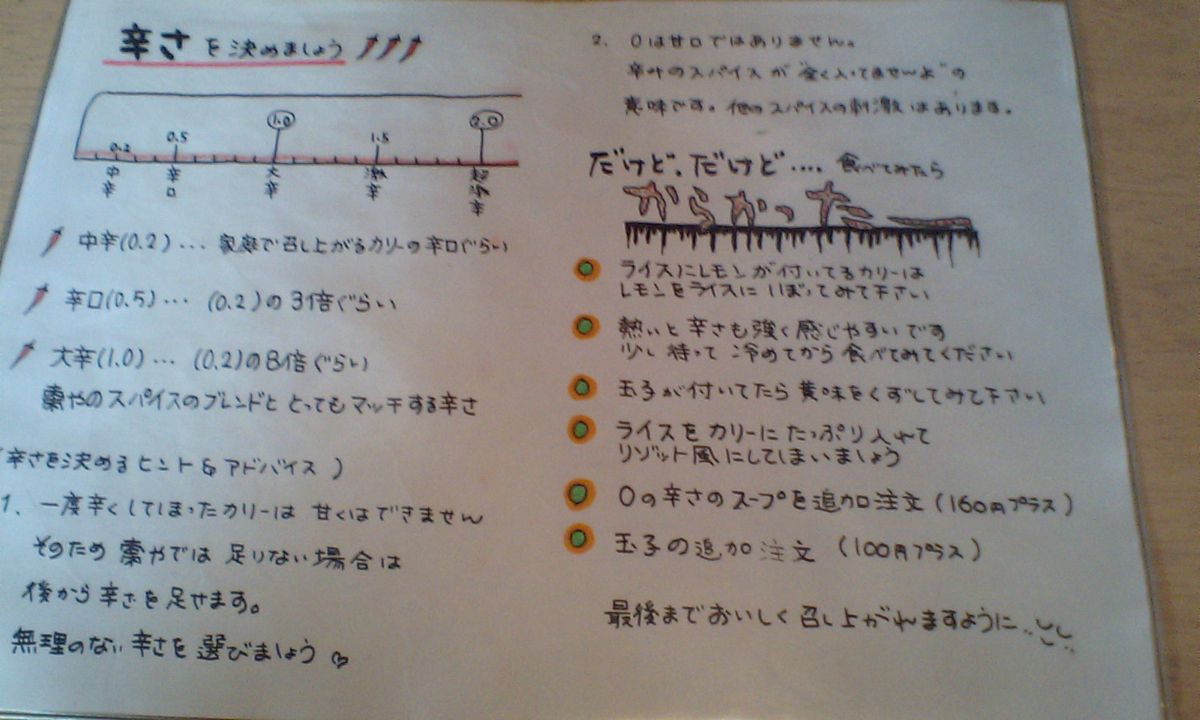 辛さを決めましょう
0.2 0.5 1.0 1.5 2.0
中辛 辛口 大辛 激辛 超激辛
中辛(0.2)… 家庭で召し上がるカリーの辛口ぐらい
辛口(0.5)… (0.2)の3倍ぐらい
大辛(1.0)… (0.2)の8倍ぐらい
やのスパイスのブレンドととってもマッチする辛さ
辛さを決めるヒント&アドバイス)
1. 一度辛くしてしまったカリーは甘くはできません
そのため やでは足りない場合は
後から辛さを足せます。
無理のない辛さを選びましょう♡
2. 0は甘口ではありません。
のスパイスが"全く入ってませんよ"の
意味です。他のスパイスの刺激はあります。
だけど、だけど‥‥ 食べてみたら
からかったー
ライスにレモンが付いてるカリーは
レモンをライスにしぼってみて下さい
熱いと辛さも強く感じやすいです
少し待って冷めてから食べてみてください
玉子が付いてたら黄味をくずしてみて下さい
ライスをカリーにたっぷり入れて
リゾット風にしてしまいましょう
0の辛さのスープを追加注文(160円プラス)
玉子の追加注文 (100円プラス)
最後までおいしく召し上がれますように